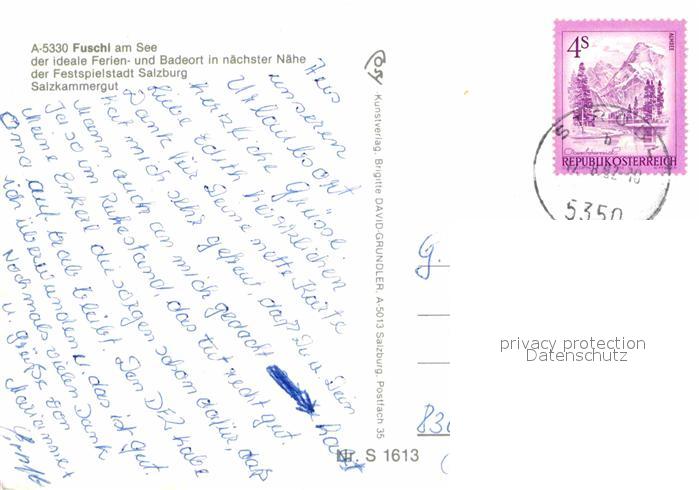 A-5330 Fuschl am See
der ideale Ferien- und Badeort in nächster Nähe
der Festspielstadt Salzburg
Salzkammergut
Aus
unserem
Urlaubsort
herzliche Grüsse.
Liebe Edith herzlichen
Dank für Deine nette Karte
hat mich sehr gefreut, daß Du u Dein
Mann auch an mich gedacht habt
Ja so im Ruhestand, das tut recht gut.
Meine Enkerl die sorgen schon dafür, daß
Oma auf trab bleibt. Den habe
ich überwunden u das ist gut.
Nochmals vielen Dank
u. grüße von
Marianne +
Kunstverlag Brigitte DAVID-GRÜNDLER, A-5013 Salzburg, Postfach 35
Nr. S 1613
4S
ALMSEE
REPUBLIK ÖSTERREICH
5350
G.
830
privacy protection
Datenschutz